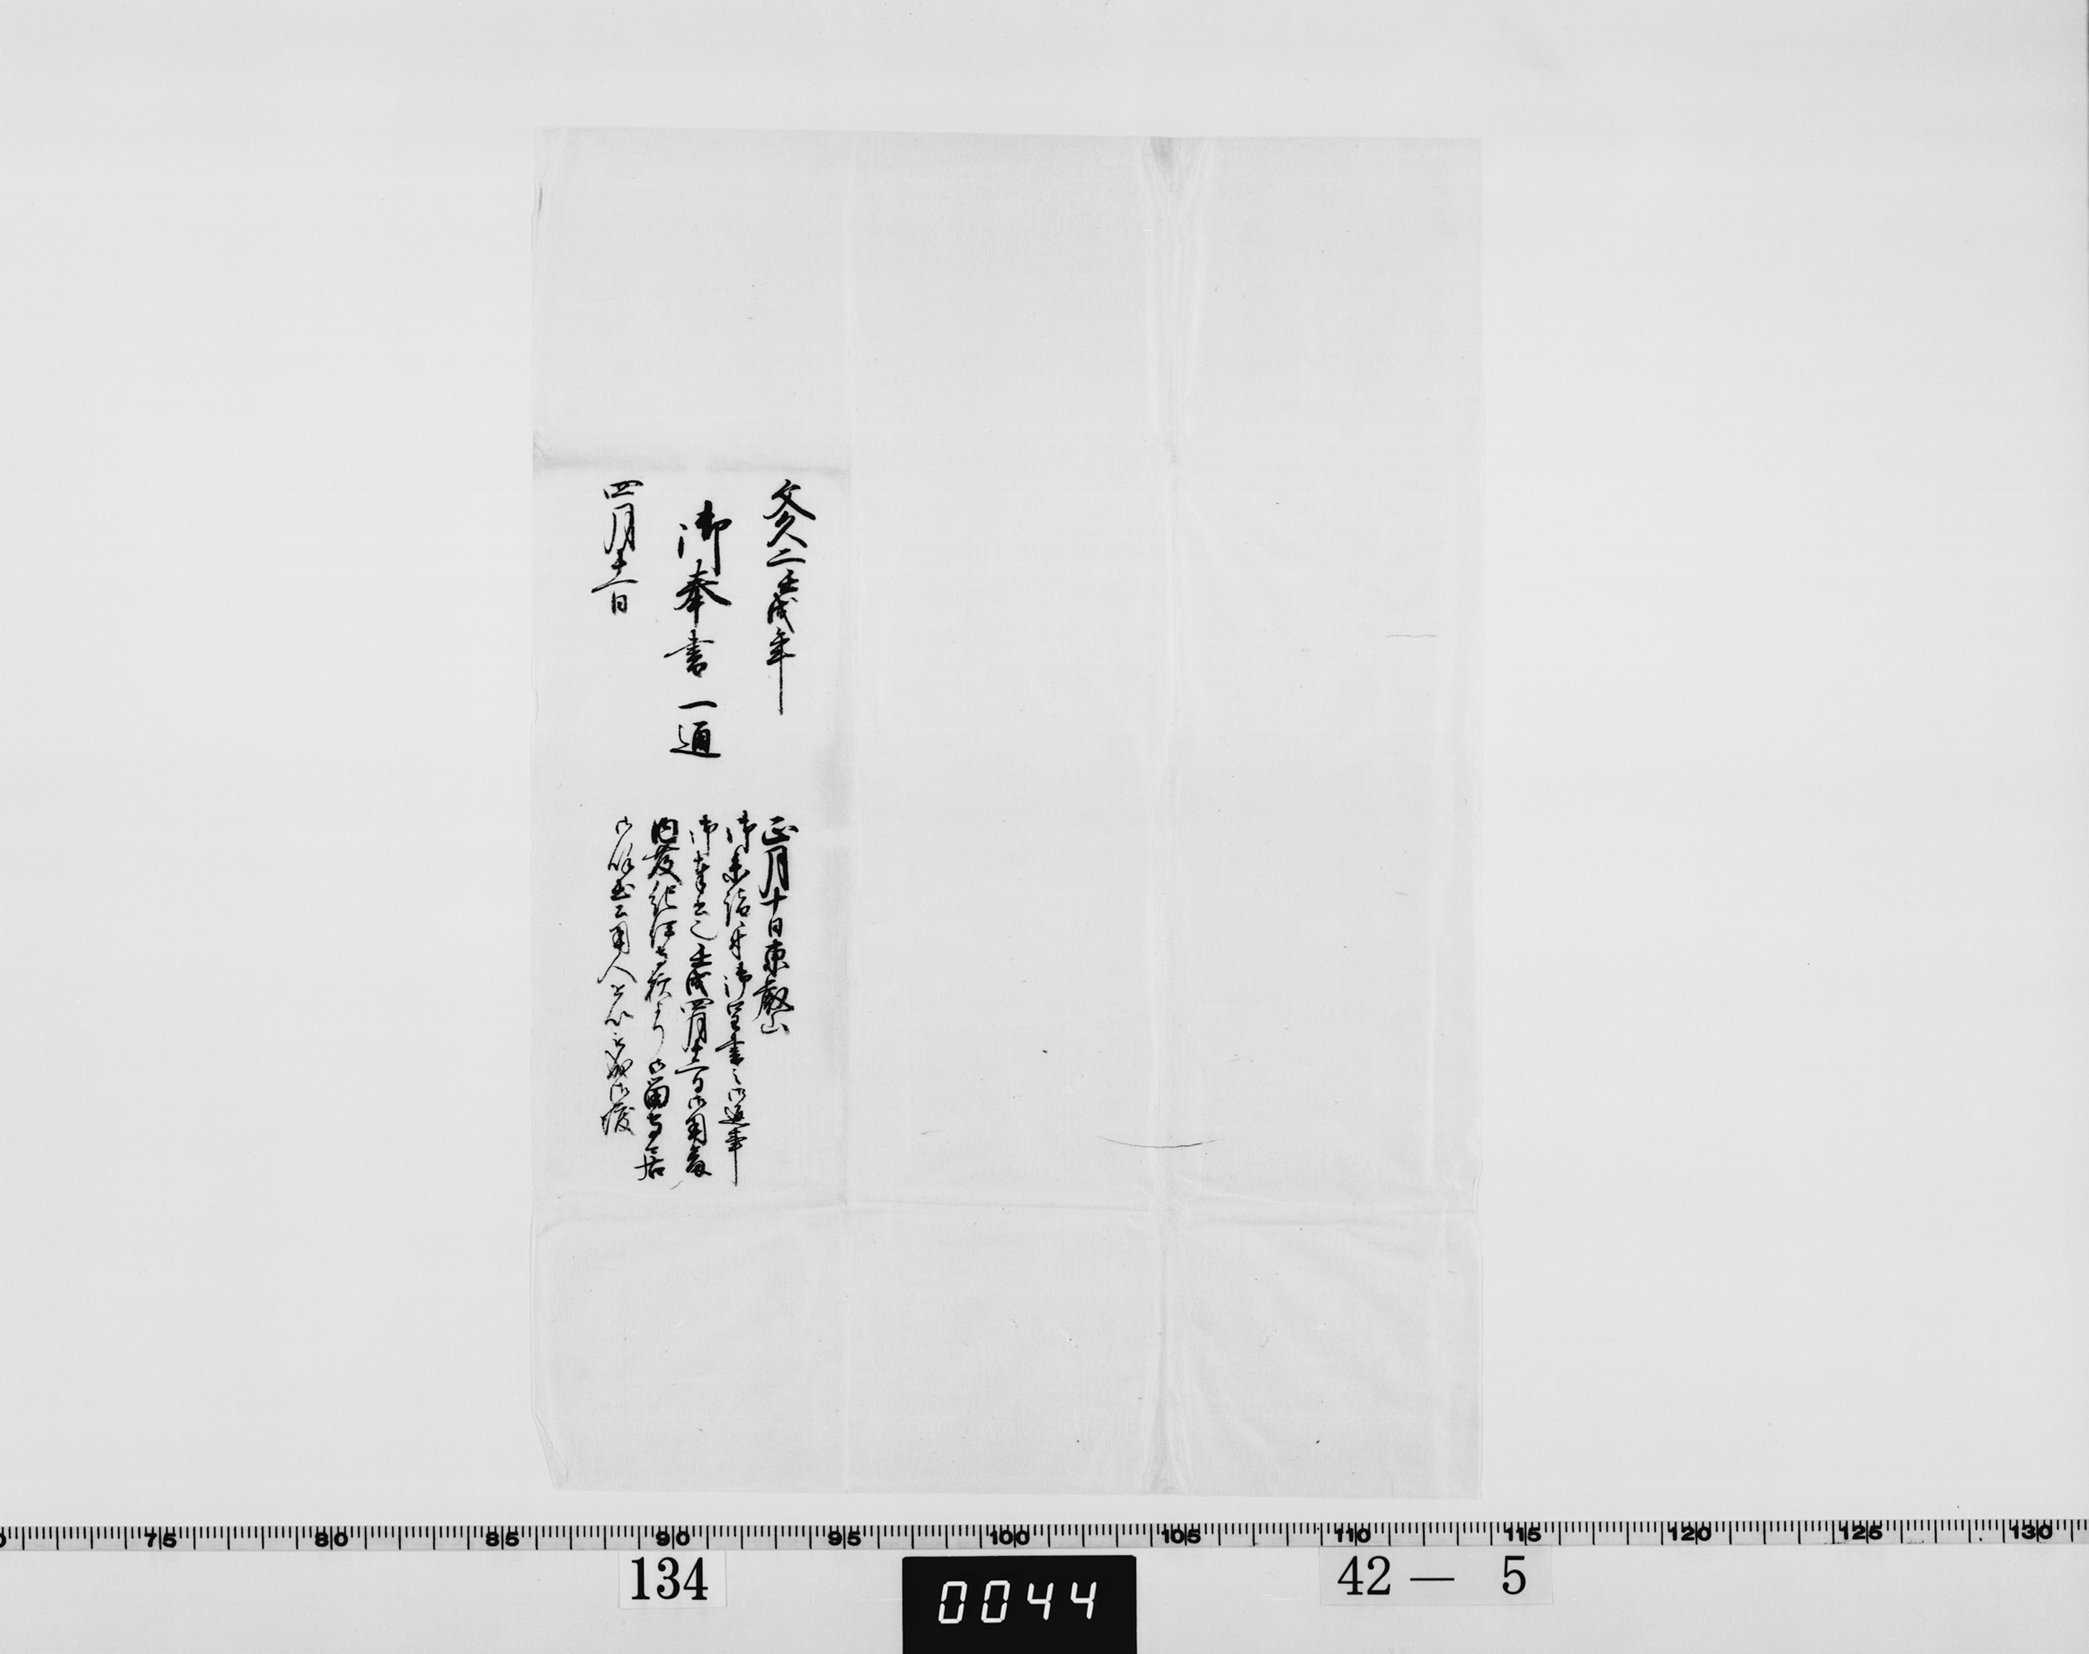 文久二壬戌年
御奉書一通
四月十一日
正月十日東叡山
御参詣并御呈書之御返事
御奉書也壬戌四月十一日御用番
内藤紀伊守殿より御留守居
御呼出
75 80 85 90 95 100 105 110 115 120 125 130
134
0044
42 — 5